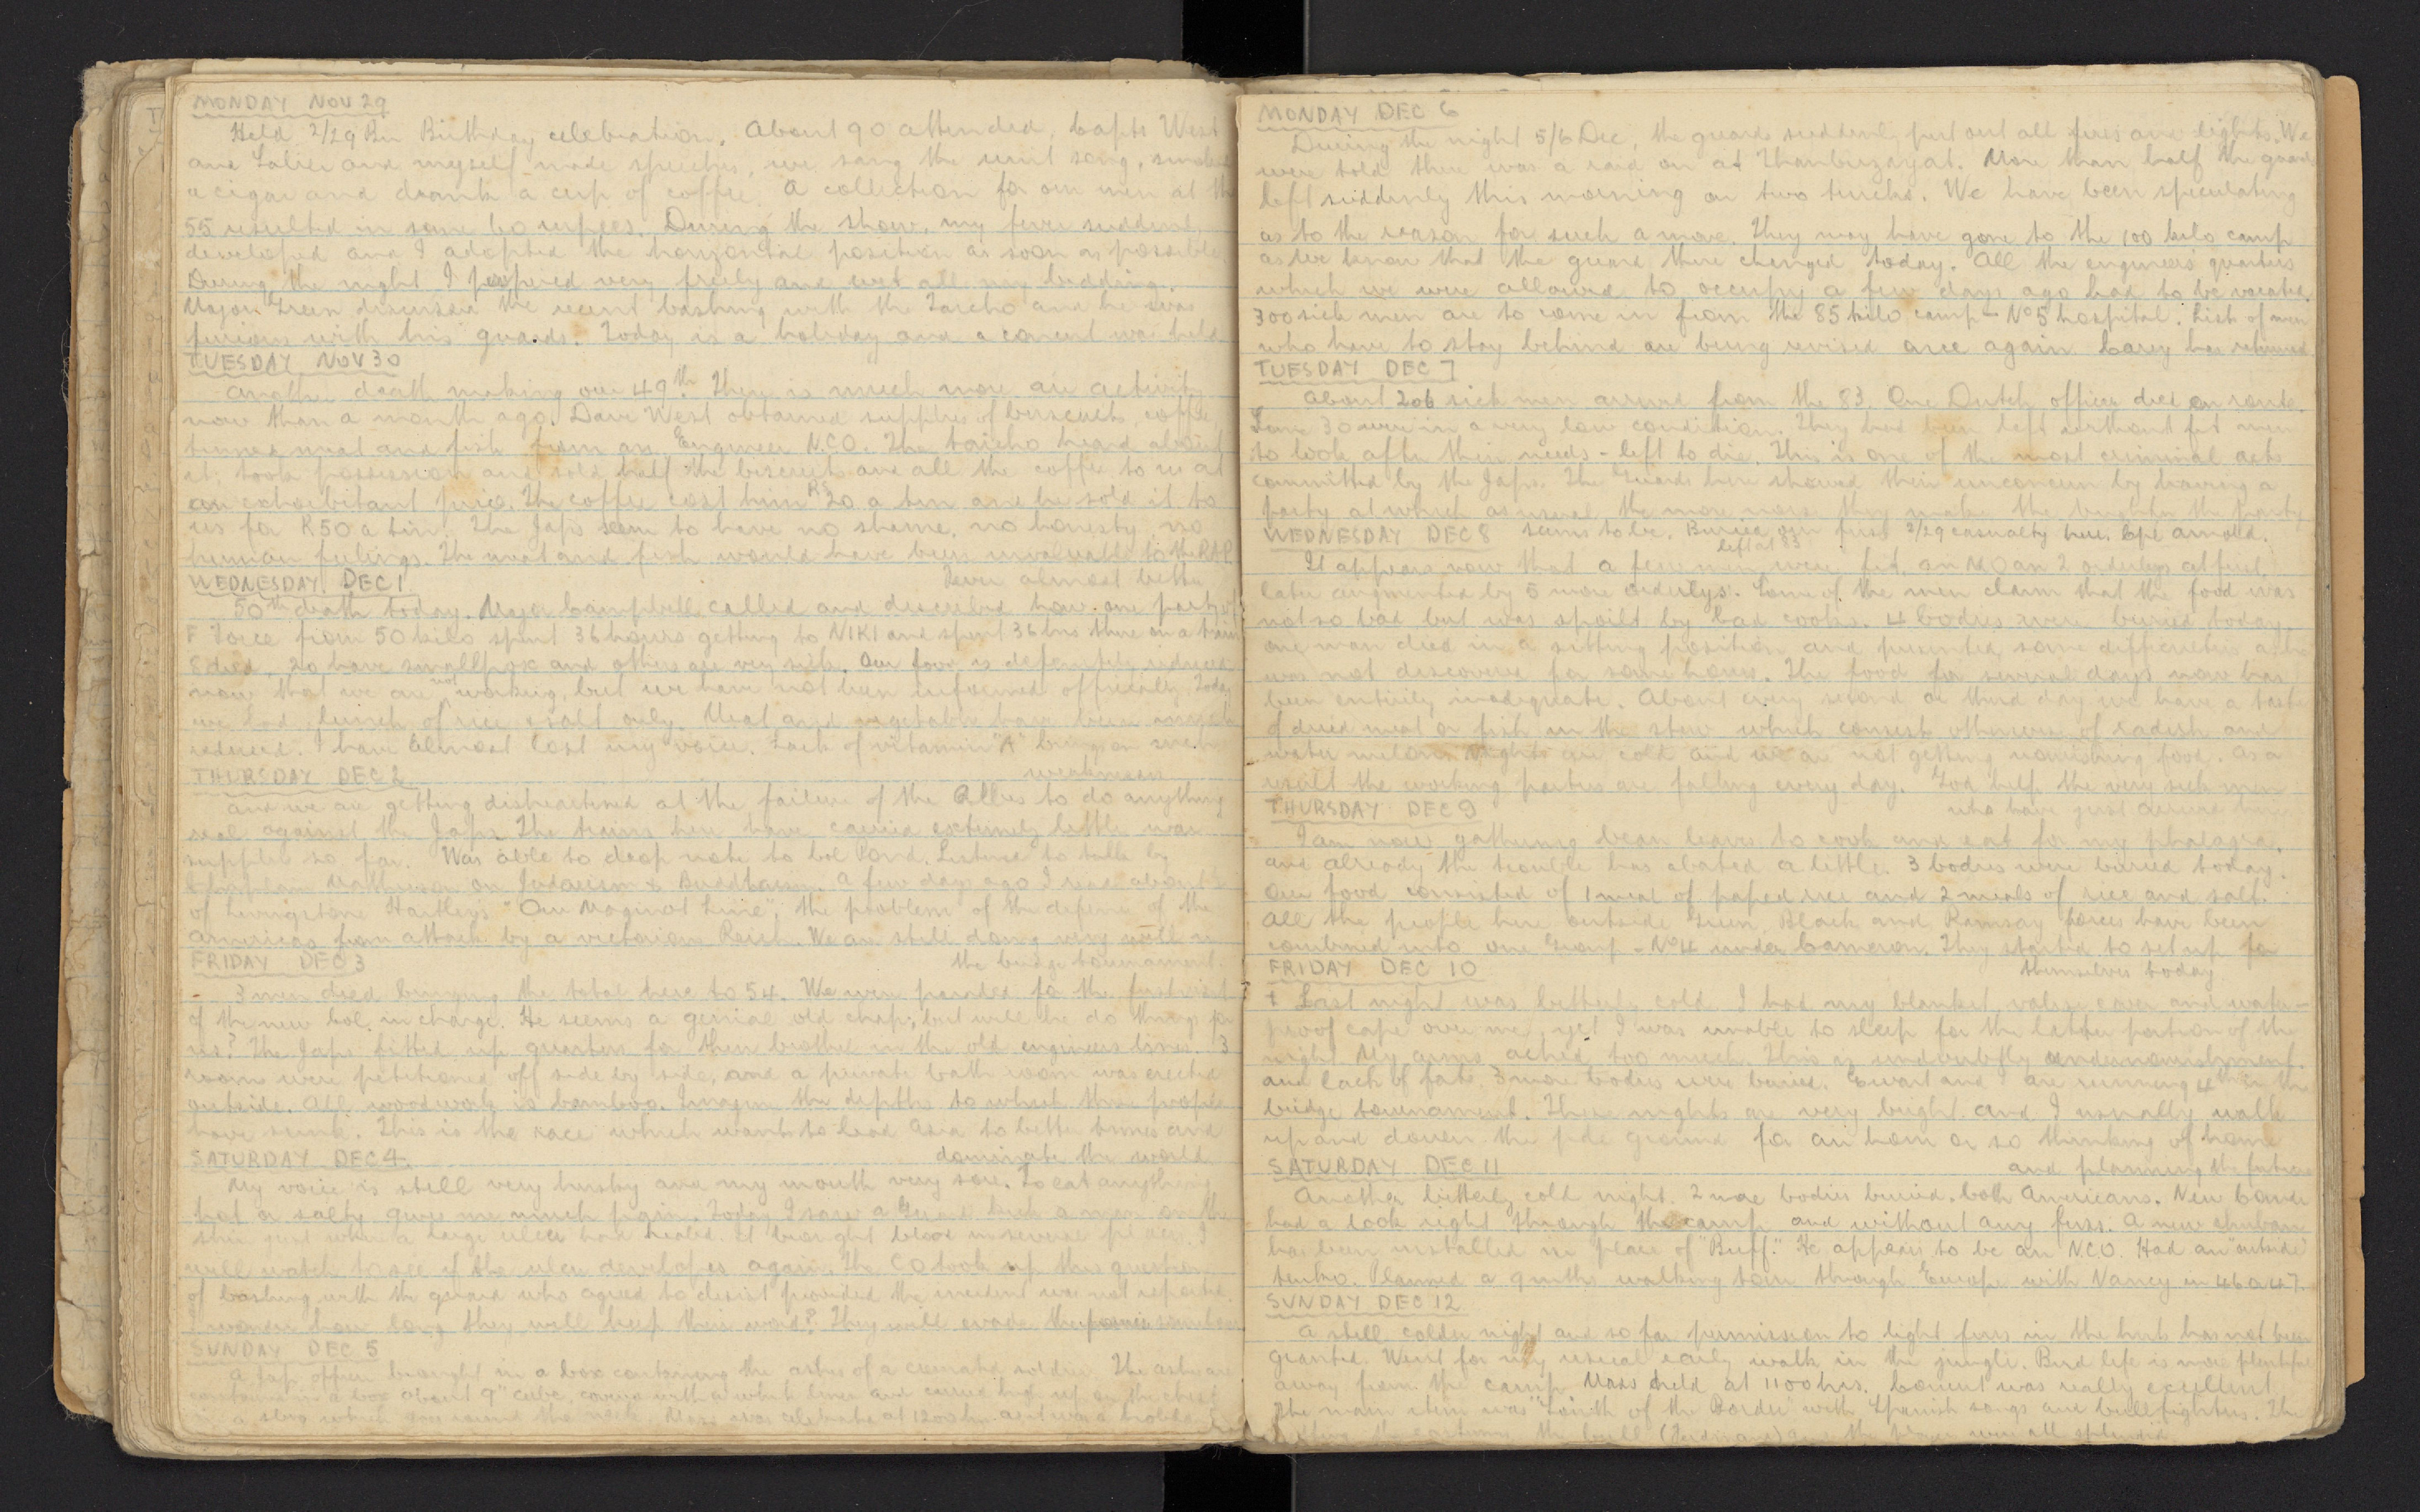 MONDAY NOV 29
Held 2/29 Bn Birthday celebration. About 90 attended, Capts West
and and myself made speeches, we sang the unit song, smoked
a cigar and drank a cup of coffee. A collection for our men at the
55 resulted in some 60 rupees. During the show, my fever suddenly
developed and I adopted the horizontal position as soon as possible.
During the night I perspired very freely and wet all my bedding.
Major Green discussed the recent bashing with the Taicho and he was
furious with his guards. Today is a holiday and a concert was held
TUESDAY NOV 30
Another death making our 49th. There is much more air activity
now than a month ago. Dave West obtained supplies of biscuits, coffee,
tinned meat and fish from an Engineer N.C.O. The taicho heard about
it, took possession and sold half the biscuits and all the coffee to us at
an exhorbitant price. The coffee cost him Rs 20 a tin and he sold it to
us for R50 a tin. The Japs seem to have no shame, no honesty, no
human feelings. The meat and fish would have been invaluable to the RAP.
WEDNESDAY. DEC 1 Fever almost better
50th death today. Major Campbell called and described how one party of
F Force from 50 kilo spent 36 hours getting to NIKI and spent 36 hrs there on a train
8 died, 20 have smallpox and others are very sick. Our food is definitely reduced
now that we are not working, but we have not been informed officially. Today
we had lunch of rice & salt only. Meat and vegetables have been
reduced. I have almost lost my voice. Lack of vitamin "A" brings on such
THURSDAY DEC 2 weakness
and we are getting disheartened at the failure of the Allies to do anything
real against the Japs. The trains here have carried extremely little war
supplies so far. Was able to drop note to Col Pond. Listened to talk by
Chaplain Mathieson on Judaeism & Buddhaism. A few days ago I read about
of Livingstone Hartley's "Our Maginot Line", the problem of the defence of the
Americas from attack by a victorious Reich. We are still doing very well in
FRIDAY DEC 3 the bridge tournament.
3 men died bringing the total here to 54. We were paraded for the first visit
of the new Col. in charge. He seems a genial old chap, but will he do things for
us? The Japs fitted up quarters for their brothel in the old engineers lines. 3
rooms were petitioned off side by side, and a private bath room was erected
outside. All woodwork is bamboo. Imagine the depths to which these people
have sunk. This is the race which wants to lead Asia to better times and
SATURDAY DEC 4. dominate the world
My voice is still very husky and my mouth very sore. To eat anything
hot or salty gives me much pain. Today I saw a Guard kick a man on the
shin just where a large ulcer had healed. It brought blood in several places. I
will watch to see if the ulcer developes again. The CO took up this question
of bashing with the guard who agreed to desist provided the incident was not reported.
I wonder how long they will keep their word? They will evade the somehow
SUNDAY DEC 5
A Jap officer brought in a box containing the ashes of a cremated soldier. The ashes are
contained in a box about 9" cube, covered with a white linen and carried high up on the chest
in a sling which goes round the neck. Mass was celebrated at 1200 hrs as it was a holiday
MONDAY DEC 6
During the night 5/6 Dec, the guards suddenly put out all fires and lights. We
were told there was a raid on at Thanbuzayat. More than half the guard
left suddenly this morning on two trucks. We have been speculating
as to the reason for such a move. They may have gone to the 100 kilo camp
as we know that the guard there changed today. All the engineers quarters
which we were allowed to occupy a few days ago had to be vacated.
300 sick men are to come in from the 85 kilo camp - No 5 hospital. List of men
who have to stay behind are being revised once again. Carey has returned
TUESDAY DEC 7
About 206 sick men arrived from the 83. One Dutch officer died on route.
Some 30 were in a very low condition. They had been left without fit men
to look after their needs - left to die. This is one of the most criminal acts
committed by the Japs. The Guards here showed their unconcern by having a
party at which as usual the more noise they make the brighter the party
WEDNESDAY DEC 8 seems to be. Buried our first 2/29 casualty here. Cpl Arnold.
left at 83
It appears now that a few men were fit, an MO an 2 orderlys at first
later augmented by 5 more orderlys. Some of the men claim that the food was
not so bad but was spoilt by bad cooks. 4 bodies were buried today
one man died in a sitting position and presented some difficulties as he
was not discovered for some hours. The food for several days now has
been entirely inadequate. About every second or third day we have a taste
of dried meat or fish in the stew which consists otherwise of radish and
water melon. Nights are cold and we are not getting nourishing food. As a
result the working parties are falling every day. God help the very sick men
THURSDAY DEC 9 who have just arrived here
I am now gathering bean leaves to cook and eat for my phalagra,
and already the trouble has abated a little. 3 bodies were buried today.
Our food consisted of 1 meal of paped rice and 2 meals of rice and salt.
All the people here outside Green, Black and Ramsay forces have been
combined into one Group - No 4 under Cameron. They started to set up for
FRIDAY DEC 10 themselves today
† Last night was bitterly cold. I had my blanket, valise cover and water-
proof cape over me, yet I was unable to sleep for the latter portion of the
night. My arms ached too much. This is undoubtedly undernourishment
and lack of fats. 3 more bodies were buried. Ewart and I are running 4th in the
bridge tournament. These nights are very bright and I usually walk
up and down the pde ground for an hour or so thinking of home
SATURDAY DEC 11 and planning the future
Another bitterly cold night. 2 more bodies buried, both Americans. New Comdr
had a look right through the camp and without any fuss. A new
has been installed in place of "Buff". He appears to be an N.C.O. Had an "outside"
tenko. Planned a 9 mths walking tour through Europe with Nancy in 46 or 47.
SUNDAY DEC 12
A still colder night and so far permission to light fires in the huts has not been
granted. Went for my usual early walk in the jungle. Bird life is more plentiful
away from the camp. Mass held at 1100 hrs. Concert was really excellent
The main item was "South of the Border" with Spanish songs and bull fighters. The
the costumes, the bull (Ferdinand) and the were all splendid